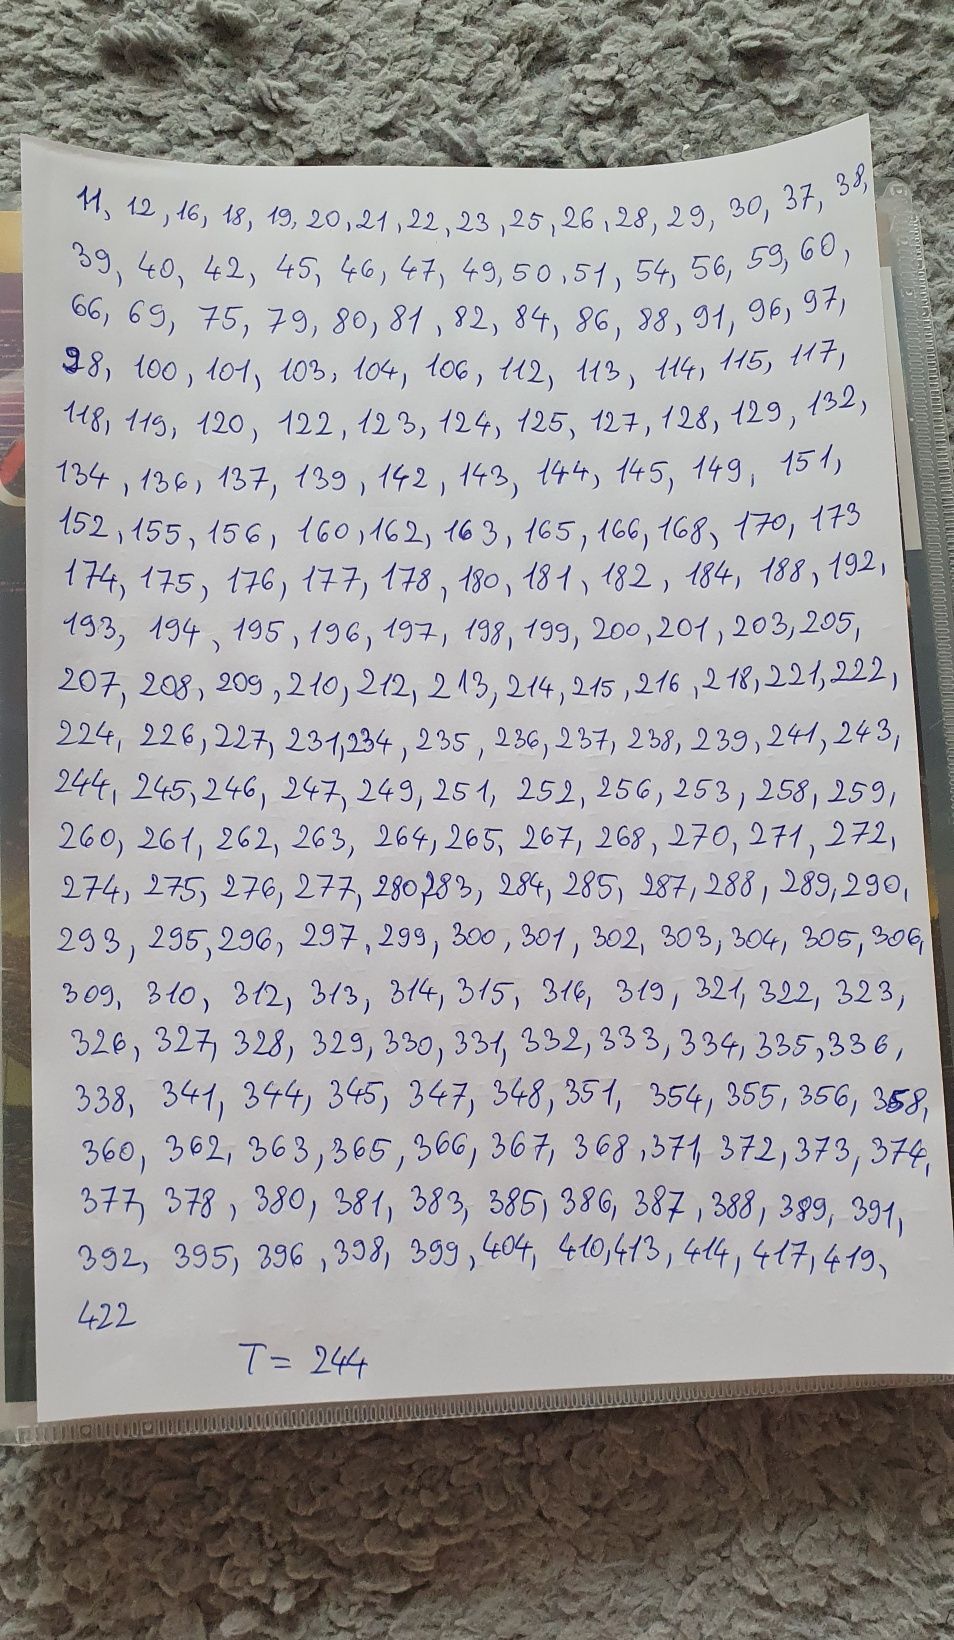 11, 12, 16, 18, 19, 20, 21, 22, 23, 25, 26, 28, 29, 30, 37, 38,
39, 40, 42, 45, 46, 47, 49, 50, 51, 54, 56, 59, 60,
66, 69, 75, 79, 80, 81, 82, 84, 86, 88, 91, 96, 97,
98, 100, 101, 103, 104, 106, 112, 113, 114, 115, 117,
118, 119, 120, 122, 123, 124, 125, 127, 128, 129, 132,
134, 136, 137, 139, 142, 143, 144, 145, 149, 151,
152, 155, 156, 160, 162, 163, 165, 166, 168, 170, 173
174, 175, 176, 177, 178, 180, 181, 182, 184, 188, 192,
193, 194, 195, 196, 197, 198, 199, 200, 201, 203, 205,
207, 208, 209, 210, 212, 213, 214, 215, 216, 218, 221, 222,
224, 226, 227, 231, 234, 235, 236, 237, 238, 239, 241, 243,
244, 245, 246, 247, 249, 251, 252, 256, 253, 258, 259,
260, 261, 262, 263, 264, 265, 267, 268, 270, 271, 272,
274, 275, 276, 277, 280, 283, 284, 285, 287, 288, 289, 290,
293, 295, 296, 297, 299, 300, 301, 302, 303, 304, 305, 306,
309, 310, 312, 313, 314, 315, 316, 319, 321, 322, 323,
326, 327, 328, 329, 330, 331, 332, 333, 334, 335, 336,
338, 341, 344, 345, 347, 348, 351, 354, 355, 356, 358,
360, 362, 363, 365, 366, 367, 368, 371, 372, 373, 374,
377, 378, 380, 381, 383, 385, 386, 387, 388, 389, 391,
392, 395, 396, 398, 399, 404, 410, 413, 414, 417, 419,
422
T = 244